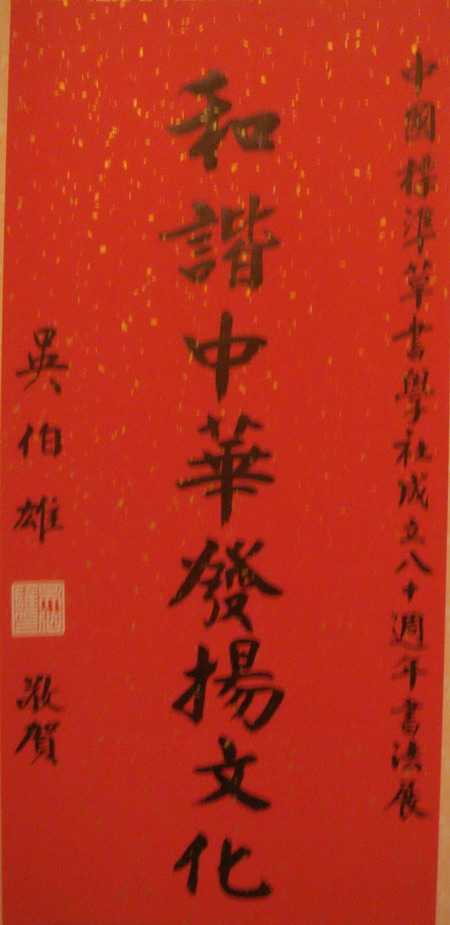 中國標準草書學社成立八十週年書法展
和諧中華發揚文化
吳伯雄
敬賀